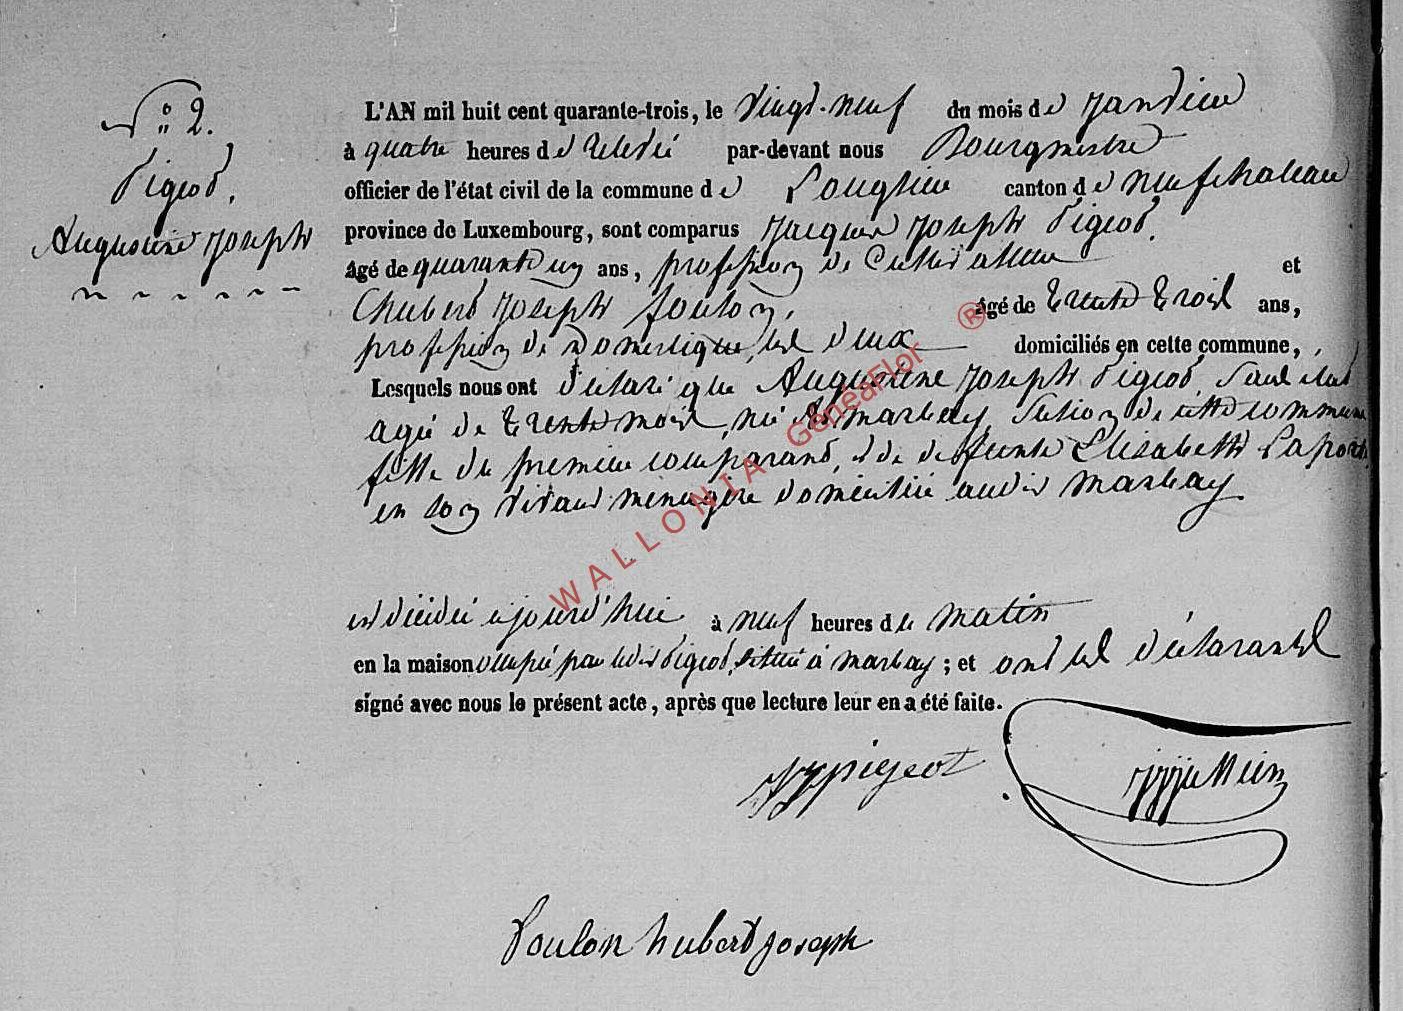 N° 2.
Pigeot,
Augustine Joseph
L'AN mil huit cent quarante-trois, le vingt-neuf du mois de Janvier
à quatre heures de relevé par-devant nous Bourgmestre
officier de l'état civil de la commune de Longlier canton de neufchateau
province de Luxembourg, sont comparus Jacques Joseph Pigeot,
âgé de quarante un ans, profession de Cultivateur et
hubert Joseph foulon, âgé de trente trois ans,
profession de Domestique, les deux domiciliés en cette commune,
Lesquels nous ont déclaré que Augustine Joseph Pigeot,
agée de trente mois, née à marbay, section de cette commune
fille du premier comparant, et de defunte Elisabeth Laporte
en son vivant menagère domiciliée audit marbay
est décédée aujourd'hui à neuf heures du matin
en la maison occupée par ledit Pigeot, située à marbay; et ont les déclarants
signé avec nous le présent acte, après que lecture leur en a été faite.
JJ pigeot
foulon hubert joseph
WALLONIA GénéaFlor ®